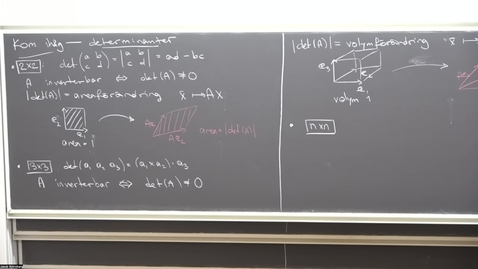 Kom ihåg — determinanter
• 2×2: det (a b c d) = |a b c d| = ad - bc
A inverterbar ⇔ det(A) ≠ 0
|det(A)| = areaförändring x ↦ Ax
e₂
e₁
area = 1
Ae₂
area = |det(A)|
• 3×3 det(a₁ a₂ a₃) = (a₁ × a₂) · a₃
A inverterbar ⇔ det(A) ≠ 0
|det(A)| = volymförändring
volym 1
• n×n